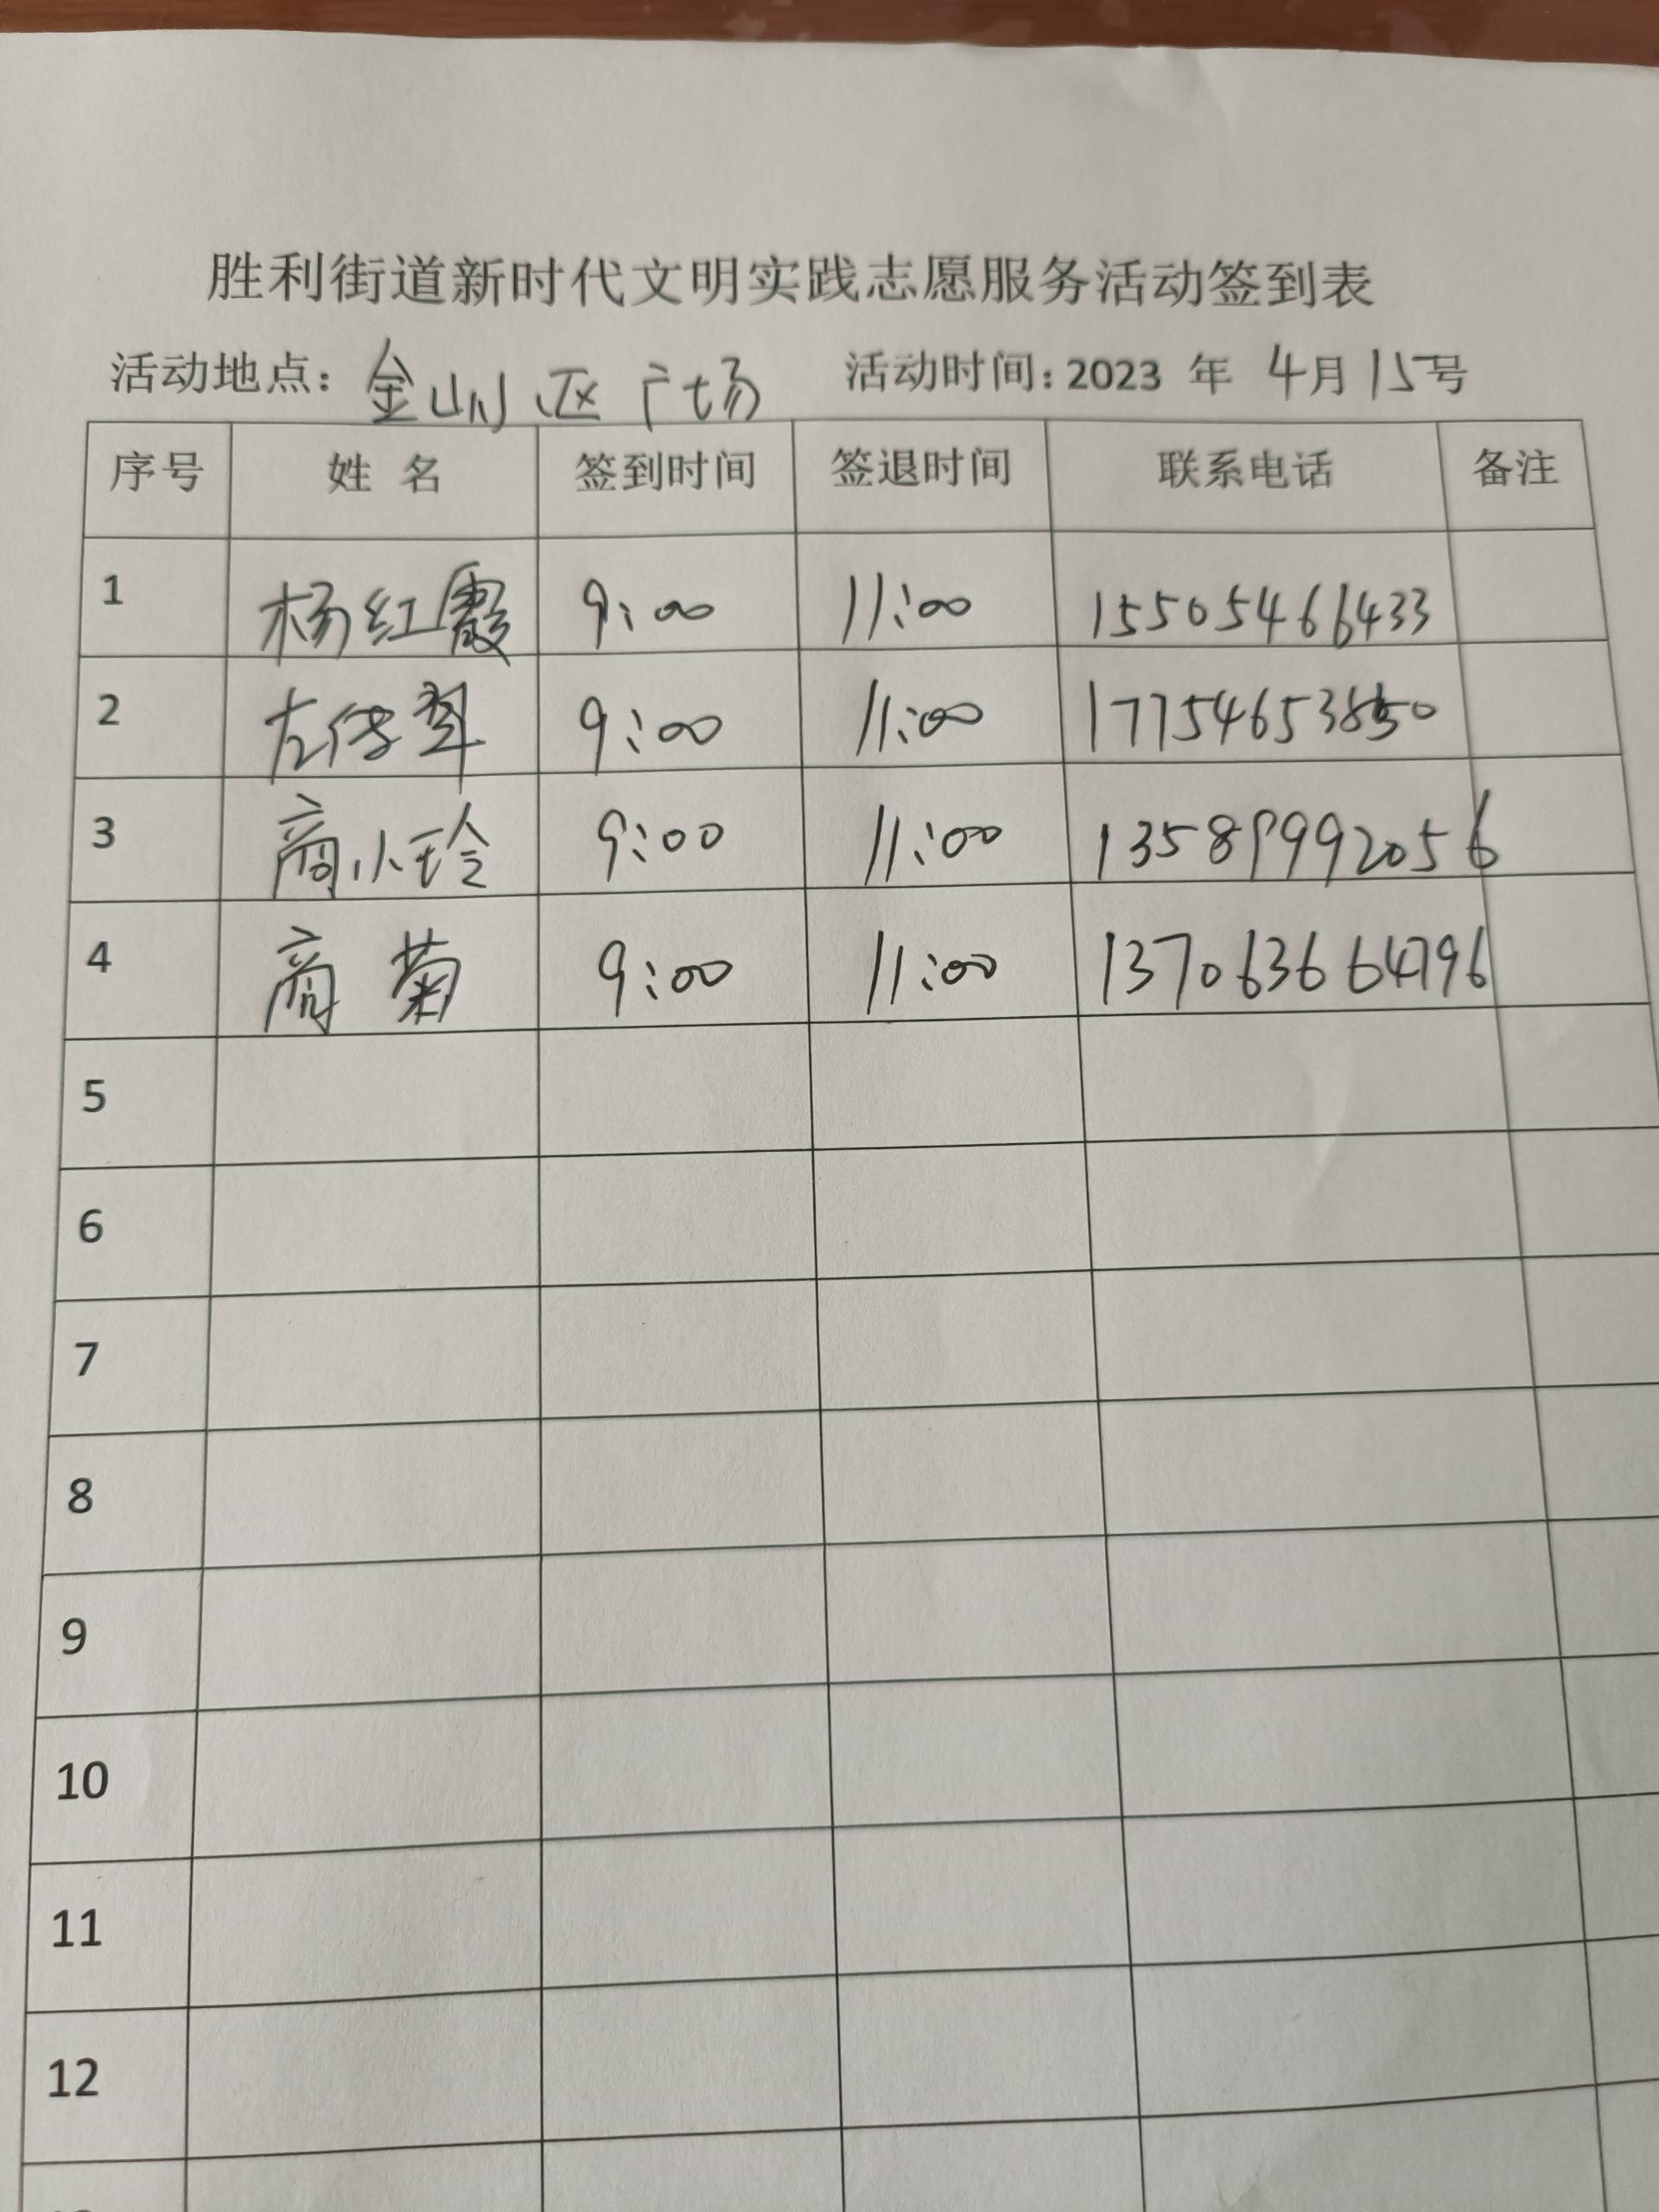 胜利街道新时代文明实践志愿服务活动签到表
活动地点：金山小区广场 活动时间：2023 年 4月15号
序号 姓 名 签到时间 签退时间 联系电话 备注
1 杨红霞 9:00 11:00 15505466433
2 左传翠 9:00 11:00
3 商小玲 9:00 11:00 13589992056
4 商菊 9:00 11:00 137063664796
5
6
7
8
9
10
11
12